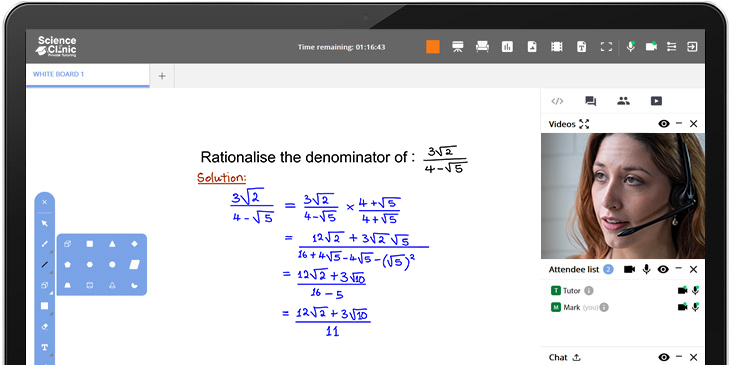 Science
Clinic
Private Tutoring
Time remaining: 01:16:43
WHITE BOARD 1
+
Videos
Rationalise the denominator of : 3√2 / 4-√5
Solution:
3√2 / 4-√5 = 3√2 / 4-√5 × 4+√5 / 4+√5
= 12√2 + 3√2 √5 / 16+4√5-4√5-(√5)²
= 12√2 + 3√10 / 16-5
= 12√2 + 3√10 / 11
Attendee list 2
T Tutor
M Mark (you)
Chat
T